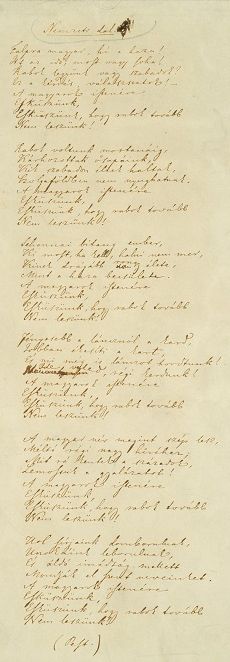 Nemzeti dal
Talpra magyar, hí a haza!
Itt az idő, most vagy soha!
Rabok legyünk vagy szabadok?
Ez a kérdés, válasszatok!
A magyarok istenére
Esküszünk,
Esküszünk, hogy rabok tovább
Nem leszünk!
Rabok voltunk mostanáig,
Kárhozottak ősapáink,
Kik szabadon éltek haltak,
Szolgaföldben nem nyughatnak.
A magyarok istenére
Esküszünk,
Esküszünk, hogy rabok tovább
Nem leszünk!
Sehonnai bitang ember,
Ki most, ha kell, halni nem mer,
Kinek drágább rongy élete,
Mint a haza becsülete.
A magyarok istenére
Esküszünk,
Esküszünk, hogy rabok tovább
Nem leszünk!
Fényesebb a láncznál a kard,
Jobban ékesíti a kart,
És mi még is lánczot hordtunk!
Ide veled régi kardunk!
A magyarok istenére
Esküszünk,
Esküszünk, hogy rabok tovább
Nem leszünk!
A magyar név megint szép lesz,
Méltó régi nagy hiréhez,
Mit rá kentek a századok,
Lemossuk a gyalázatot!
A magyarok istenére
Esküszünk,
Esküszünk, hogy rabok tovább
Nem leszünk!
Hol sírjaink domborulnak,
Unokáink leborulnak,
És áldó imádság mellett
Mondják el szent neveinket.
A magyarok istenére
Esküszünk,
Esküszünk, hogy rabok tovább
Nem leszünk!
(Pest.)